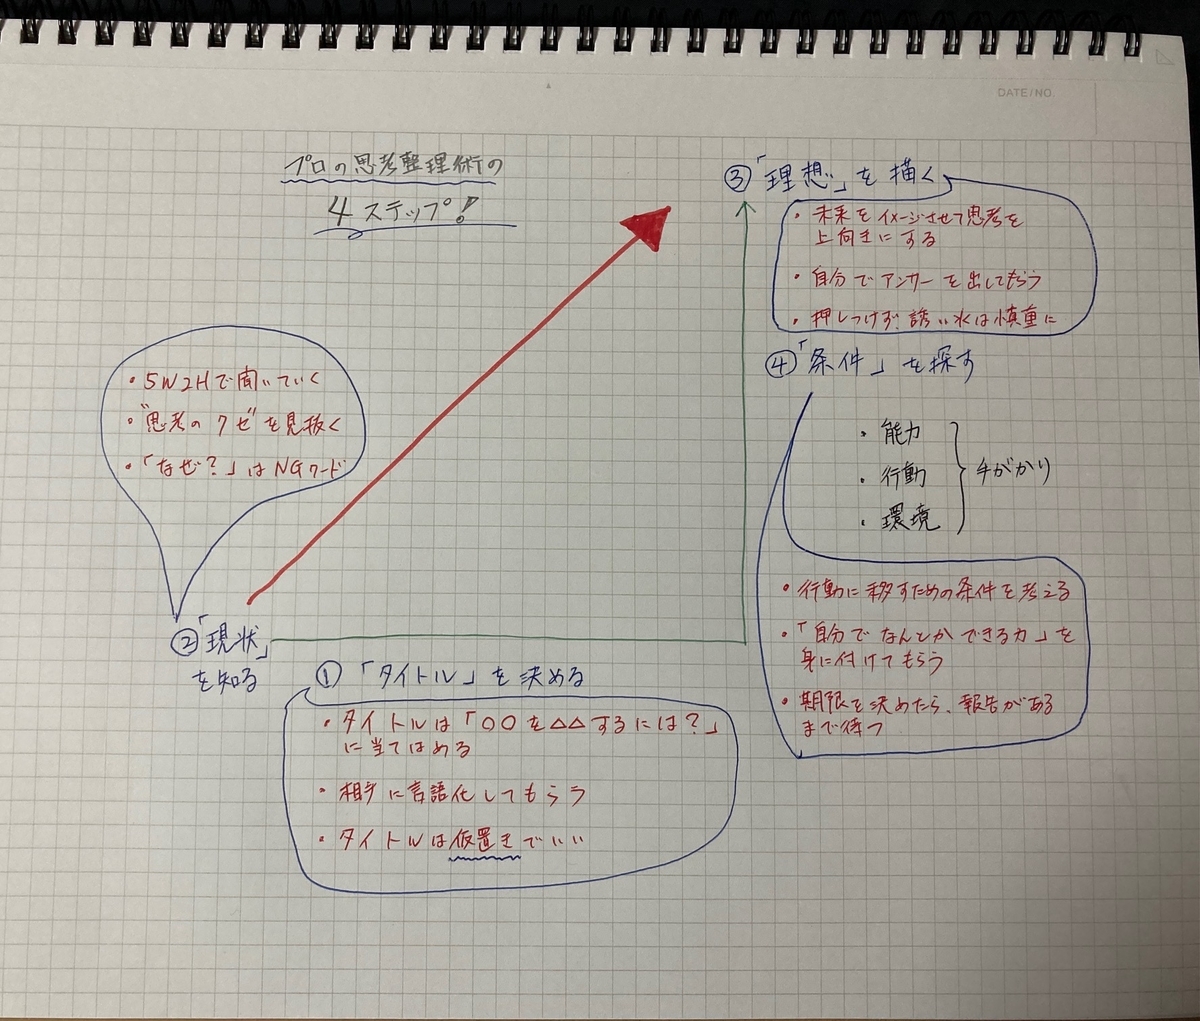 DATE/NO.
プロの思考整理術の
4ステップ!
③「理想」を描く
・未来をイメージさせて思考を
上向きにする
・自分でアンサーを出してもらう
・押しつけず、誘い水は慎重に
④「条件」を探す
・能力
・行動
・環境
手がかり
・行動に移すための条件を考える
・「自分でなんとかできる力」を
身に付けてもらう
・期限を決めたら、報告がある
まで待つ
・5W2Hで聞いていく
・"思考のクセ"を見抜く
・「なぜ?」はNGワード
②「現状」
を知る
①「タイトル」を決める
・タイトルは「〇〇を△△するには?」
に当てはめる
・相手に言語化してもらう
・タイトルは仮置きでいい